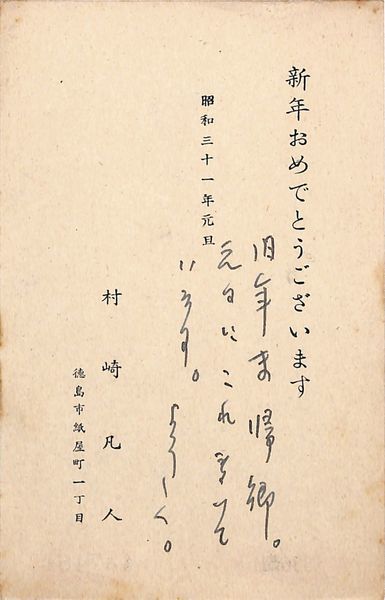 新年おめでとうございます
旧年末帰郷。
元日にこれ書いて
います。
よろしく。
昭和三十一年元旦
村崎凡人
徳島市紙屋町一丁目